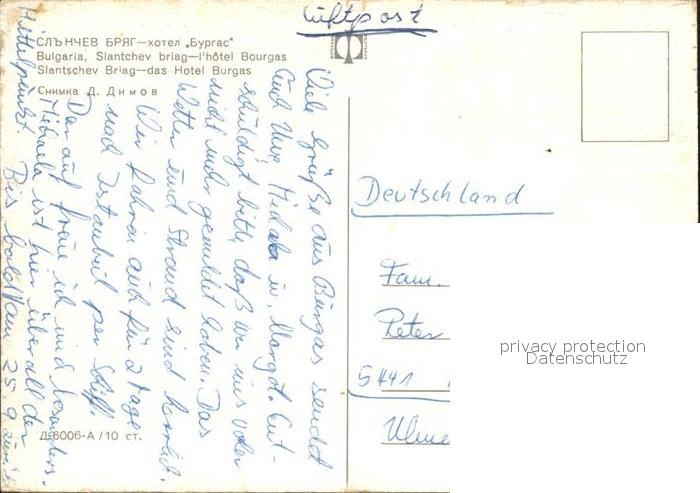 Luftpost
СЛЪНЧЕВ БРЯГ—хотел „Бургас"
Bulgaria, Slantchev briag—l'hôtel Bourgas
Slantschev Briag—das Hotel Burgas
Снимка Д. Димов
Viele Grüße aus Burgas sendet
Euch Uwe, Michaela u. Margot. Ent-
schuldigt bitte, daß wir uns vorher
nicht mehr gemeldet haben. Das
Wetter und Strand sind herrlich.
Wir fahren auch für 2 Tage
nach Istanbul per Schiff.
Darauf freue ich mich besonders.
Michaela ist hier überall der
Mittelpunkt. Bis bald
25 9
Deutschland
Fam.
Peter
5441
Ulme
privacy protection
Datenschutz
Д-6006-А / 10 ст.